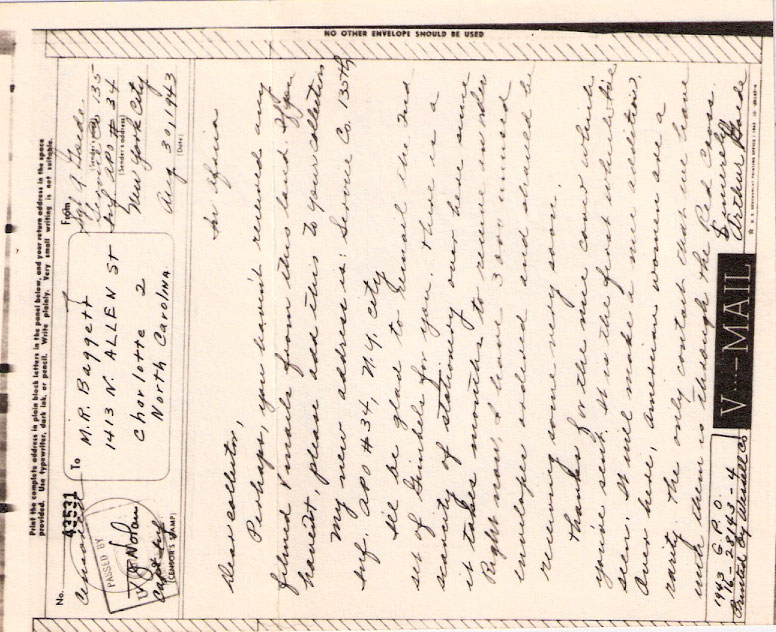 Print the complete address in plain block letters in the panel below, and your return address in the space
provided. Use typewriter, dark ink, or pencil. Write plainly. Very small writing is not suitable.
No.
43531
(CENSOR'S STAMP)
PASSED BY
Nolan
Capt Inf
To
M.R. Baggett
1413 N. ALLEN ST
Charlotte 2
North Carolina
From
Service Co 135
(Sender's name)
Inf APO # 34
(Sender's address)
New York City
Aug 30, 1943
(Date)
Dear collector,
Perhaps, you haven't received any
filmed V mails from this land. If you
haven't, please add this to your collection
My new address is: Service Co. 135th
Inf. APO #34, N.Y. City
I'll be glad to the 2nd
set of for you. There is a
scarcity of stationery over here since
it takes months to reorder
Right now, I have 3 unused
envelopes ordered and should be
receiving some very soon.
Thanks for the nice cover which
you've sent. It is the first which I've
seen. It will make a nice addition.
Over here, American women are a
rarity. The only contact that we have
with them is through the Red Cross.
Sincerely
Arthur
V···—MAIL
1943 G.P.O.
16-28143-4
Printed by
NO OTHER ENVELOPE SHOULD BE USED